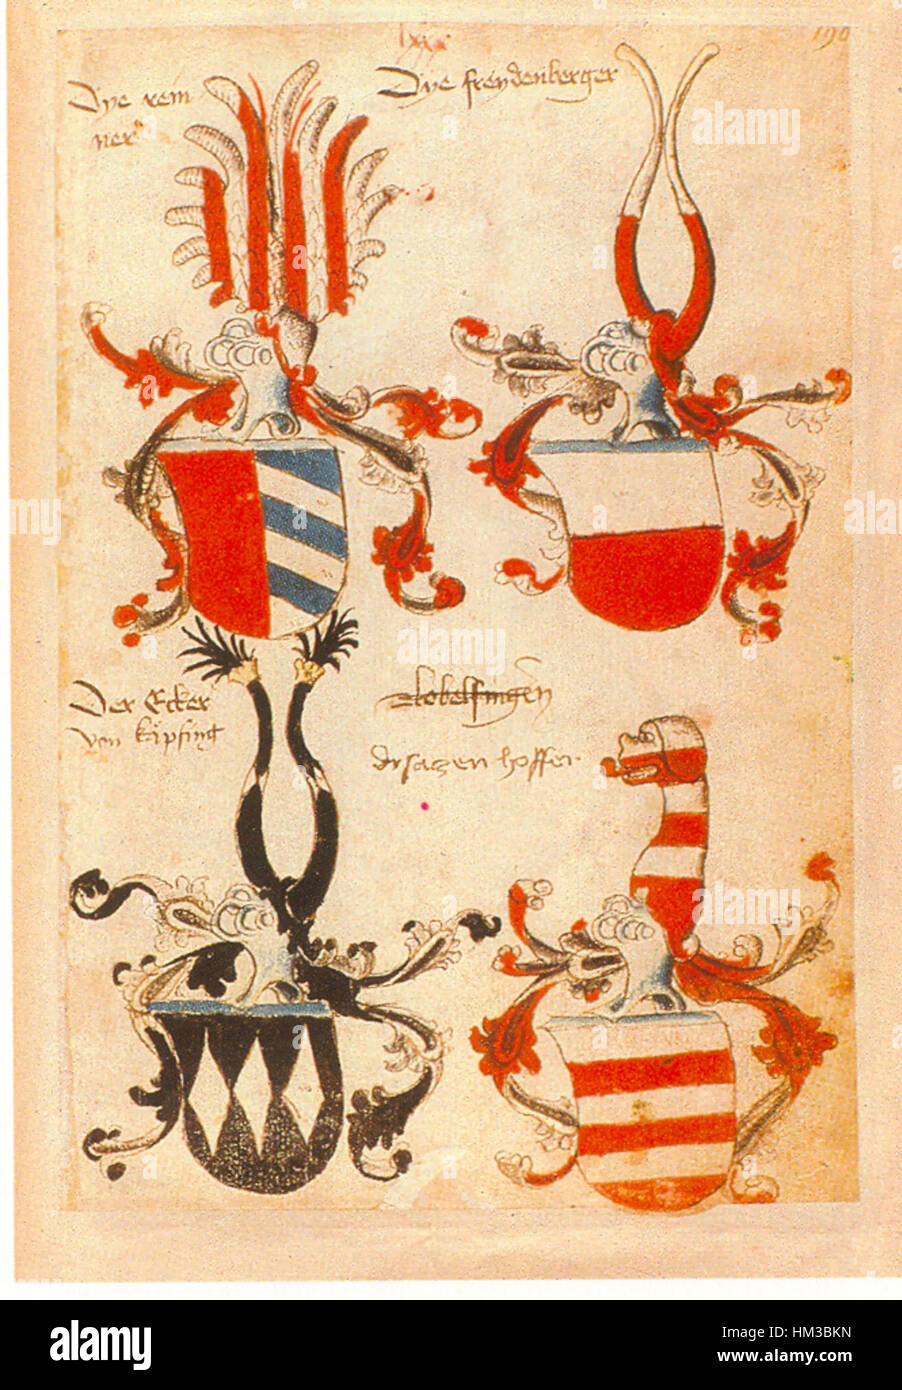 lxxx
190
Dye rem
ner
Dye frendenberger
Der Ecker
von käpfing
Nobelfingen
dy satzen hoffer
alamy
Image ID: HM3BKN
www.alamy.com